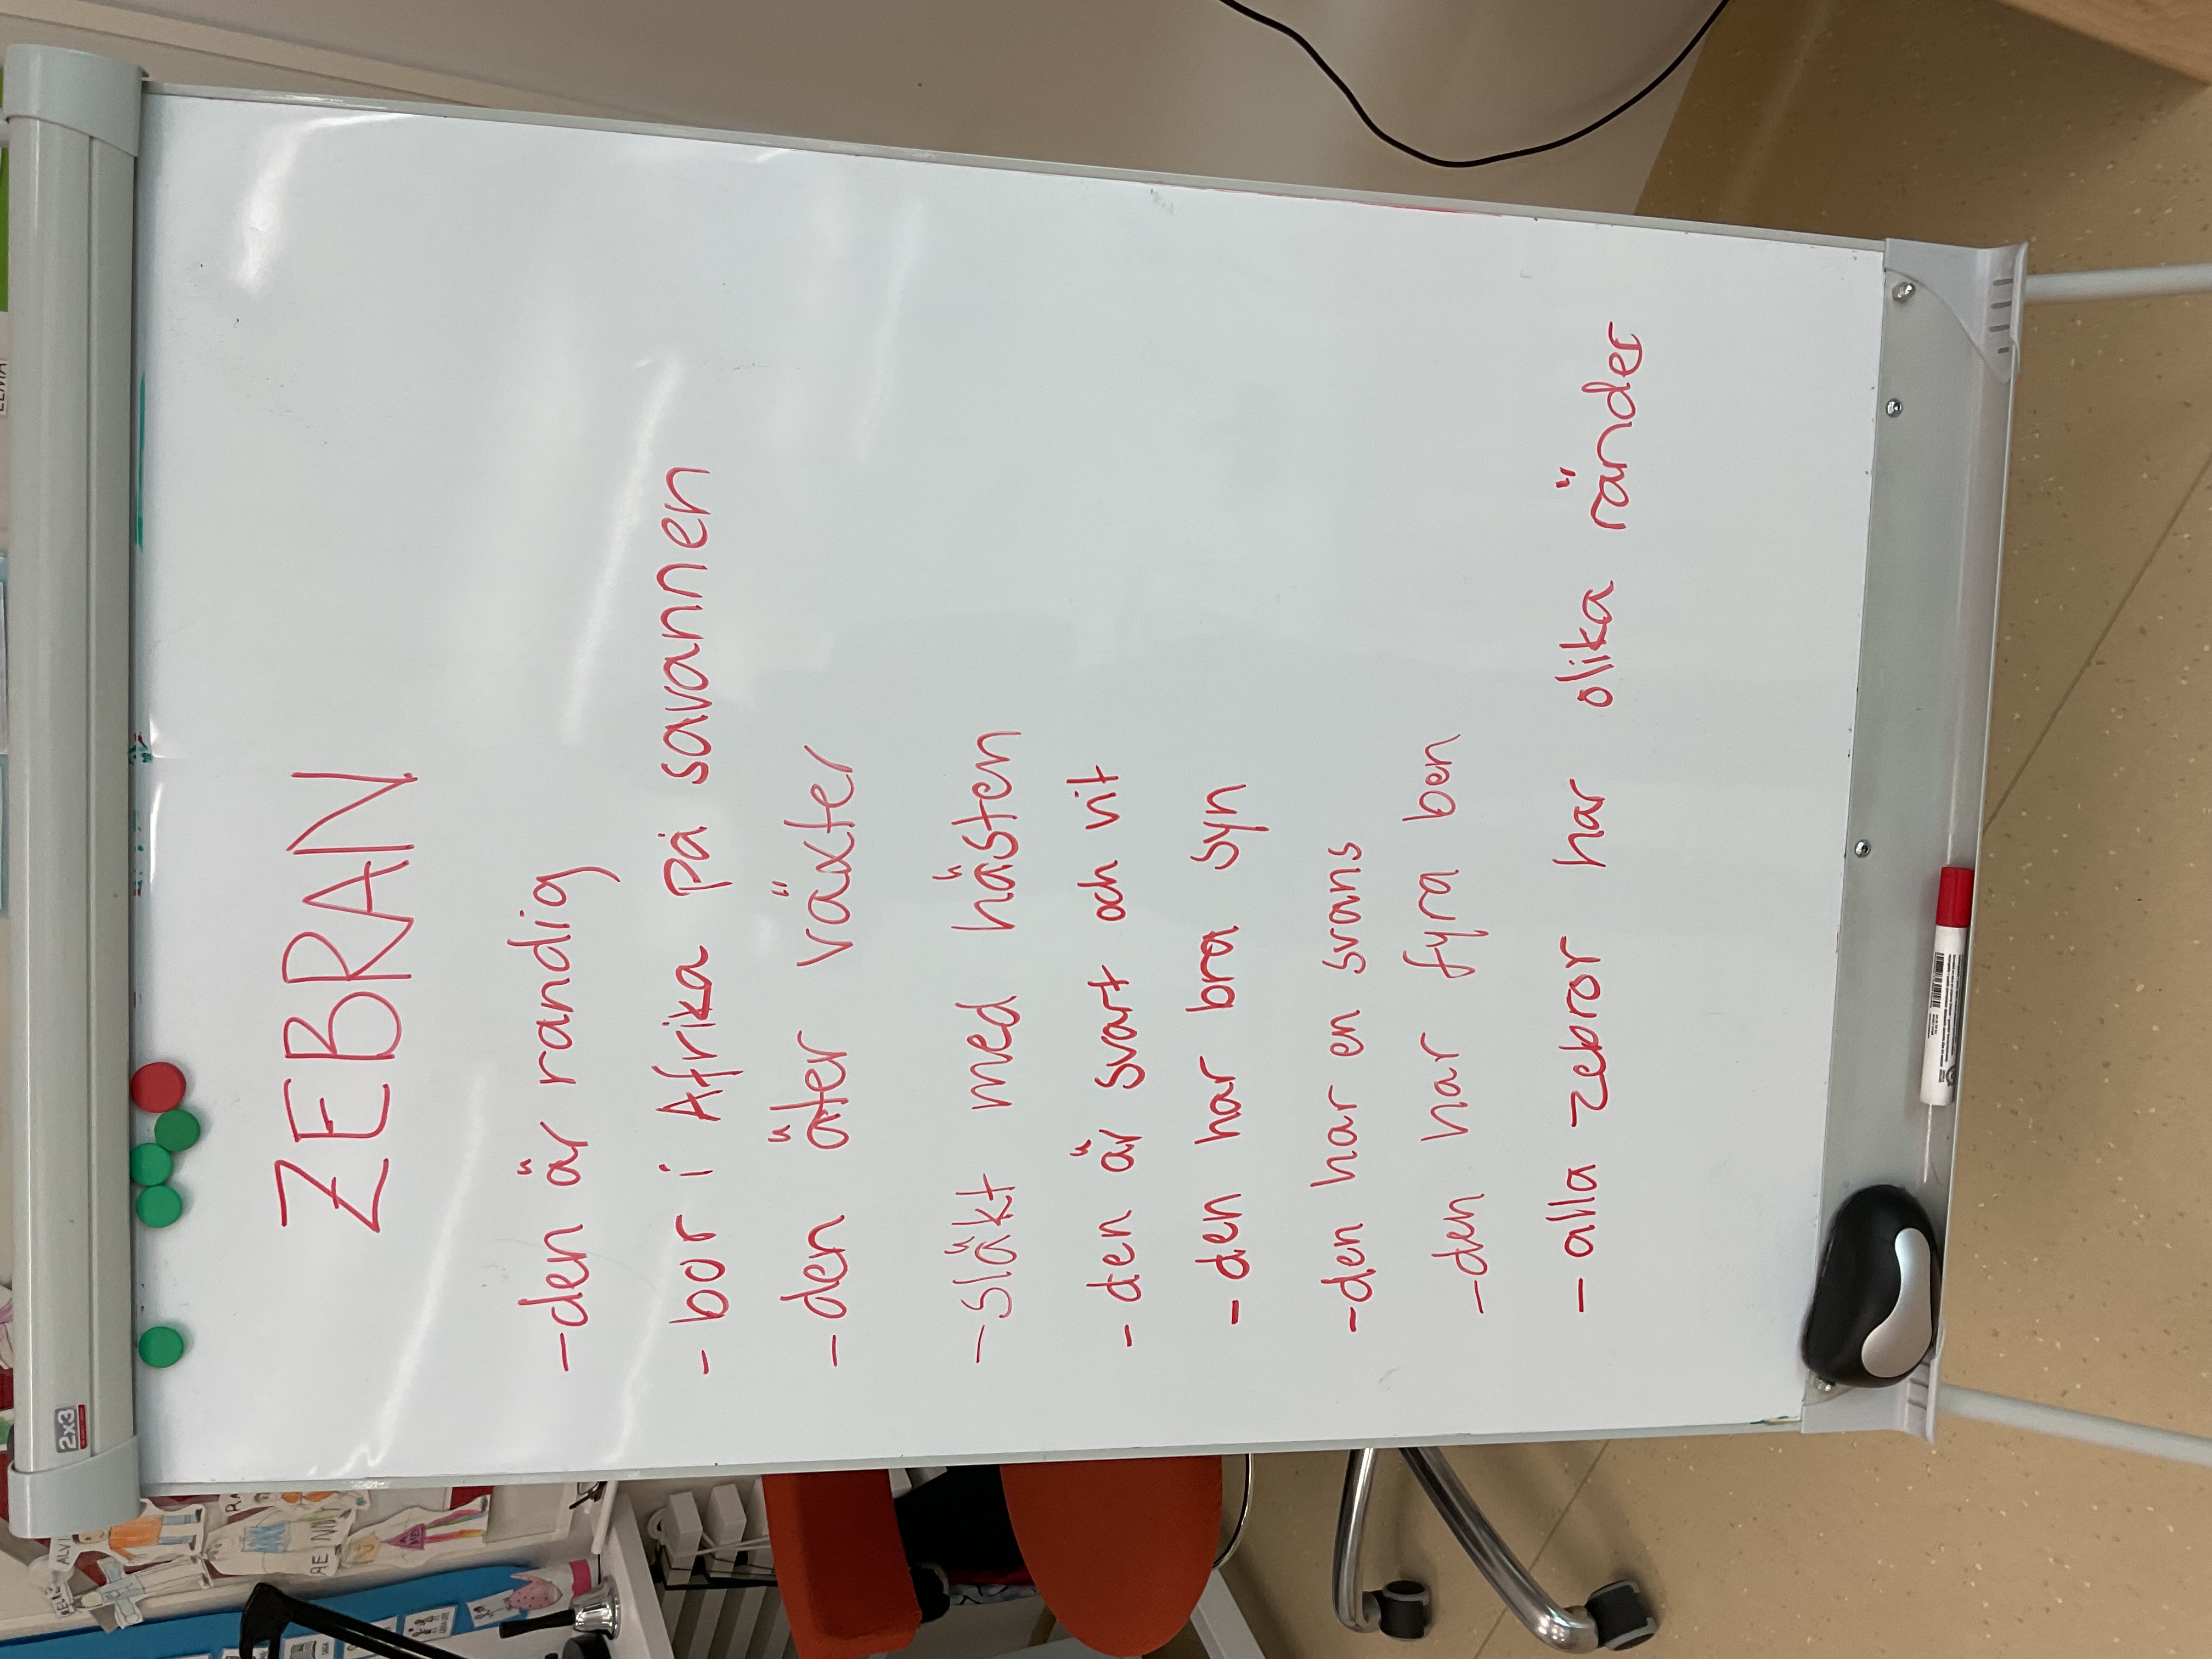 ZEBRAN
-den är randig
- bor i Afrika på savannen
-den äter växter
-släkt med hästen
- den är svart och vit
- den har bra syn
-den har en svans
-den har fyra ben
- alla zebror har olika ränder
2x3